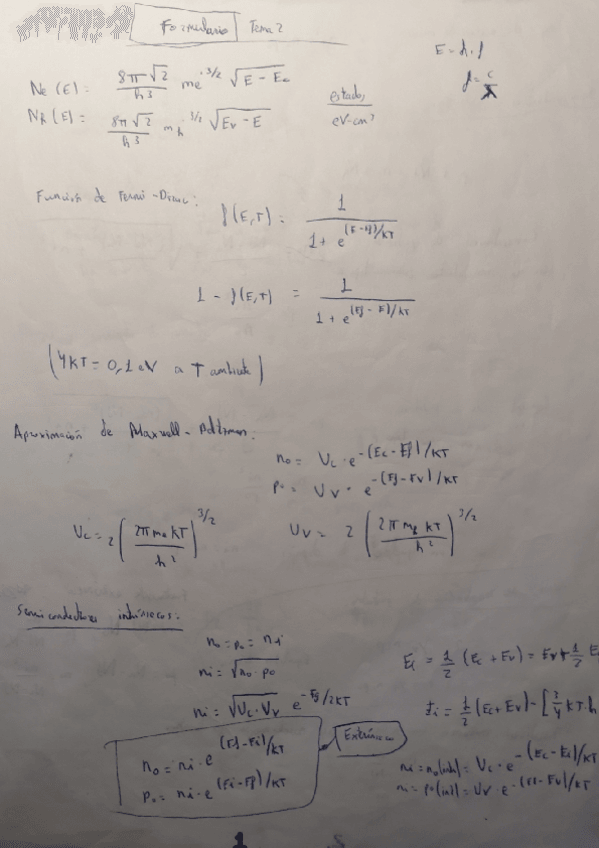 Formulario Tema 2
E = h · f
f = c/λ
Ne(E) = 8π√2/h³ me^3/2 √(E - Ec)
Nh(E) = 8π√2/h³ mh^3/2 √(Ev - E)
estados/eV·cm³
Función de Fermi-Dirac:
f(E,T) = 1/(1 + e^(E-Ef)/KT)
1 - f(E,T) = 1/(1 + e^(Ef-E)/KT)
(4KT = 0,1 eV a T ambiente)
Aproximación de Maxwell-Boltzman:
no = Uc · e^-(Ec-Ef)/KT
po = Uv · e^-(Ef-Ev)/KT
Uc = 2 (2π me KT/h²)^3/2
Uv = 2 (2π mh KT/h²)^3/2
Semiconductores intrínsecos:
no = po = ni
ni = √(no · po)
ni = √(Uc · Uv) e^-Eg/2KT
Ei = 1/2 (Ec + Ev) = Ev + 1/2 E
Ei = 1/2 (Ec + Ev) - [3/4 KT · h
Extrínsecos
no = ni · e^(Ef-Ei)/KT
po = ni · e^(Ei-Ef)/KT
ni = no(int) = Uc · e^-(Ec-Ei)/KT
ni = po(int) = Uv · e^-(Ei-Ev)/KT
1